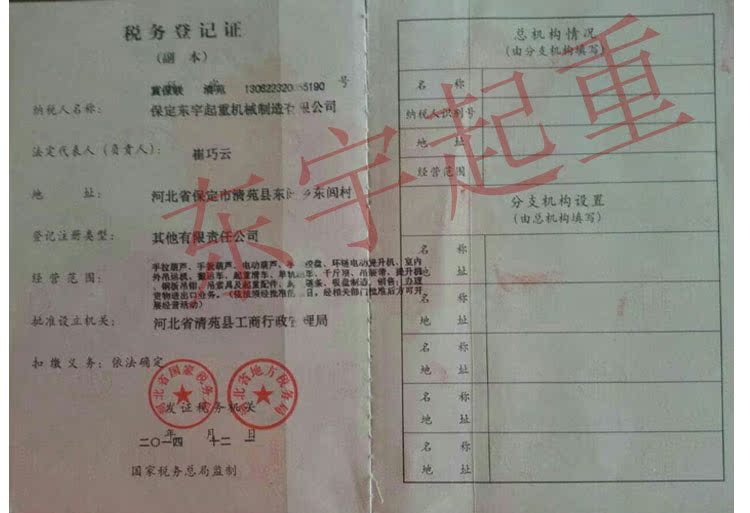 税务登记证
(副 本)
冀保联 清苑 13062232055190 号
纳税人名称: 保定东宇起重机械制造有限公司
法定代表人(负责人): 崔巧云
地 址: 河北省保定市清苑县东闾乡东闾村
登记注册类型: 其他有限责任公司
经营范围:
手拉葫芦、手扳葫芦、电动葫芦、
环链电动提升机、室内
外吊运机、
起重滑车、
千斤顶、
提升机
、钢板吊钳、吊索具及起重配件、
链条、吸盘制造、销售;办理
货物进出口业务。(依法须经批准的项目,经相关部门批准后方可开
展经营活动)
批准设立机关: 河北省清苑县工商行政管理局
扣缴义务: 依法确定
河北省国家税务局
河北省地方税务局
发证税务机关
二〇一四 年 十二 月 一 日
国家税务总局监制
总机构情况
(由分支机构填写)
名 称
纳税人识别号
地 址
经营范围
分支机构设置
(由总机构填写)
名 称
地 址
名 称
地 址
名 称
地 址
名 称
地 址
名 称
地 址
东宇起重